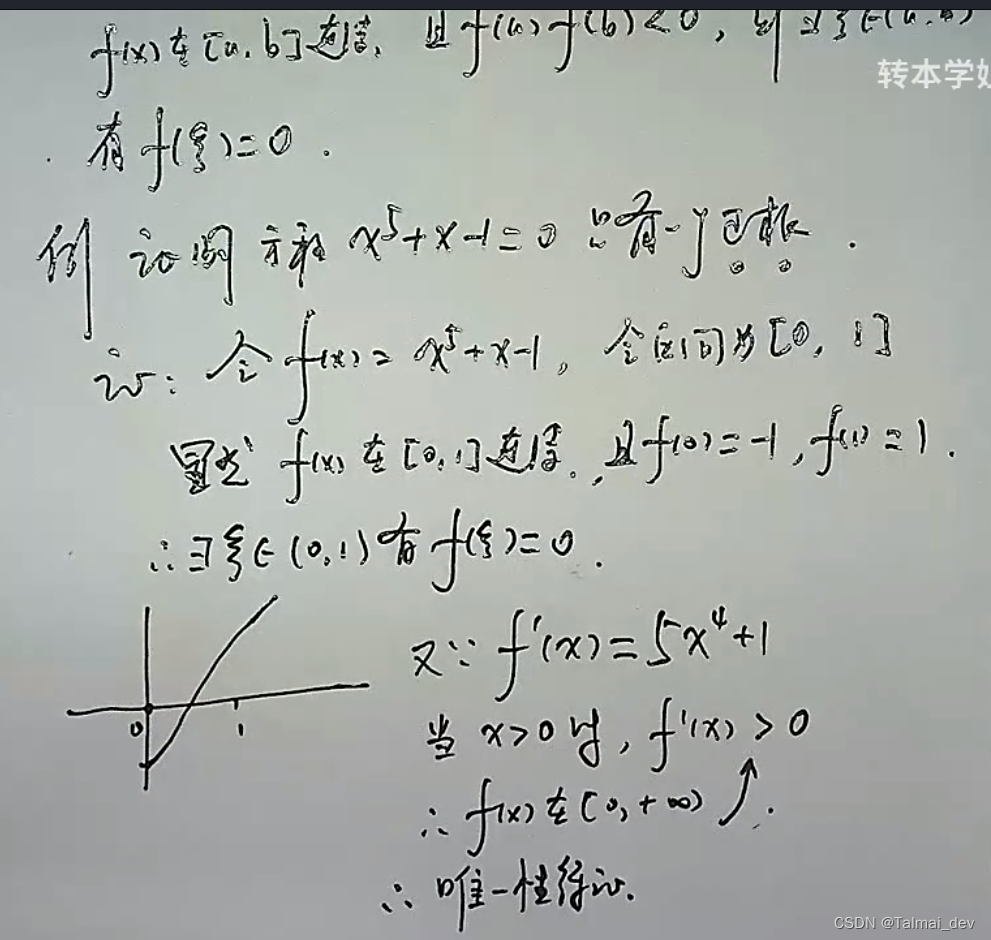 f(x)在[a,b]连续,且f(a)f(b)<0,则∃ξ∈(a,b)
转本学
有f(ξ)=0.
例 证明方程 x⁵+x-1=0 只有一个正根.
证:令f(x)=x⁵+x-1,令区间为[0,1]
显然 f(x)在[0,1]连续,且f(0)=-1,f(1)=1.
∴∃ξ∈(0,1)有f(ξ)=0.
又∵f'(x)=5x⁴+1
0 1
当x>0时,f'(x)>0
∴f(x)在[0,+∞)↗.
∴唯一性得证.
CSDN @Talmai_dev